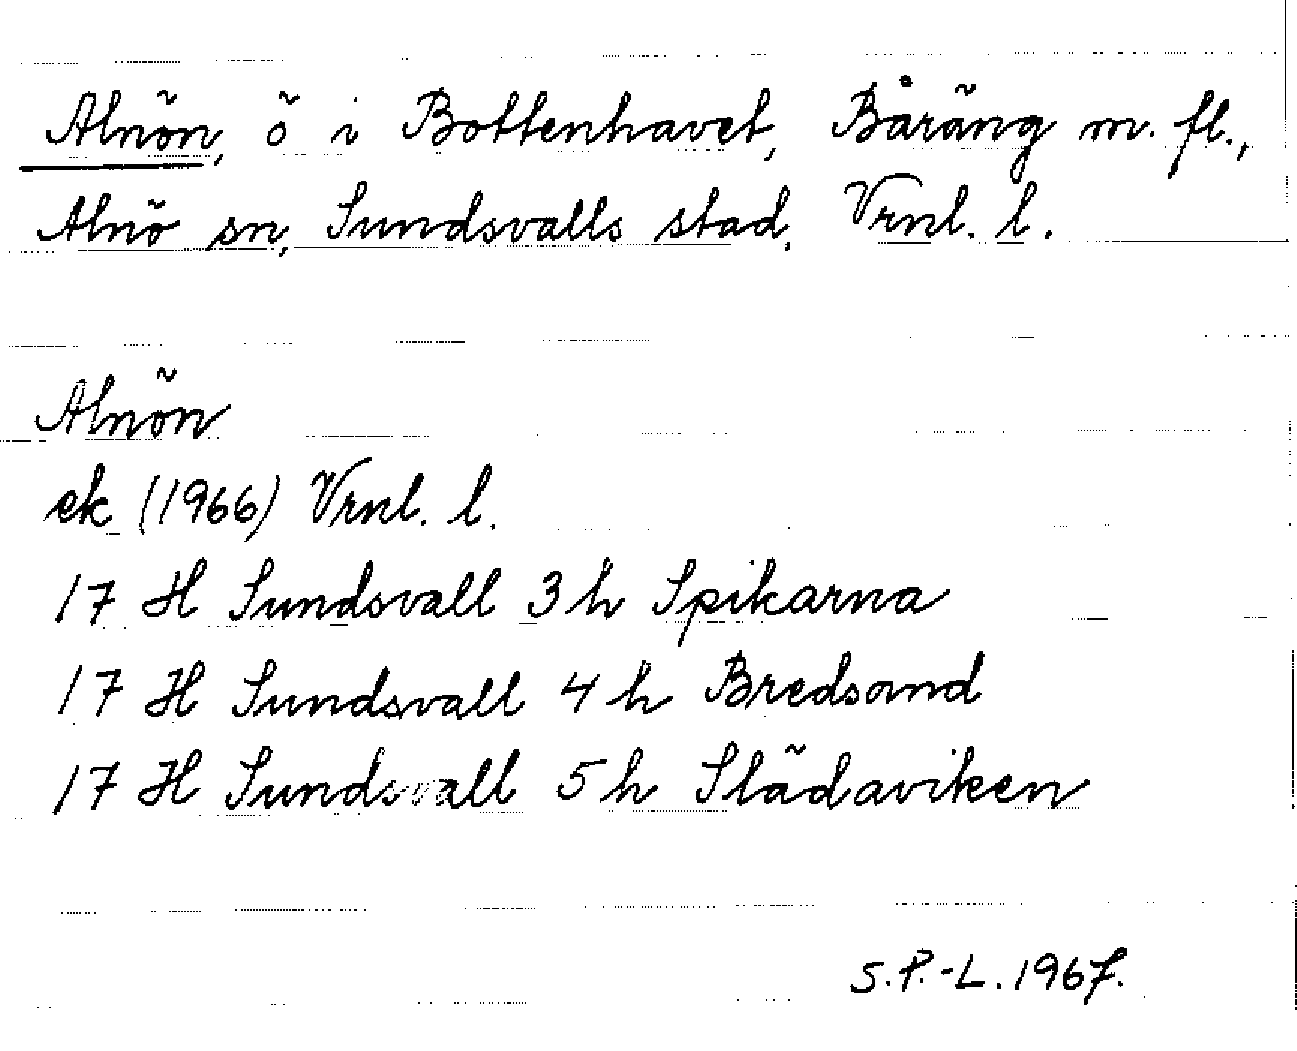 Alnön, ö i Bottenhavet, Båräng m. fl.,
Alnö sn, Sundsvalls stad, Vrnl. l.
Alnön
ek (1966) Vrnl. l.
17 H Sundsvall 3 h Spikarna
17 H Sundsvall 4 h Bredsand
17 H Sundsvall 5 h Slädaviken
S.P.-L. 1967.